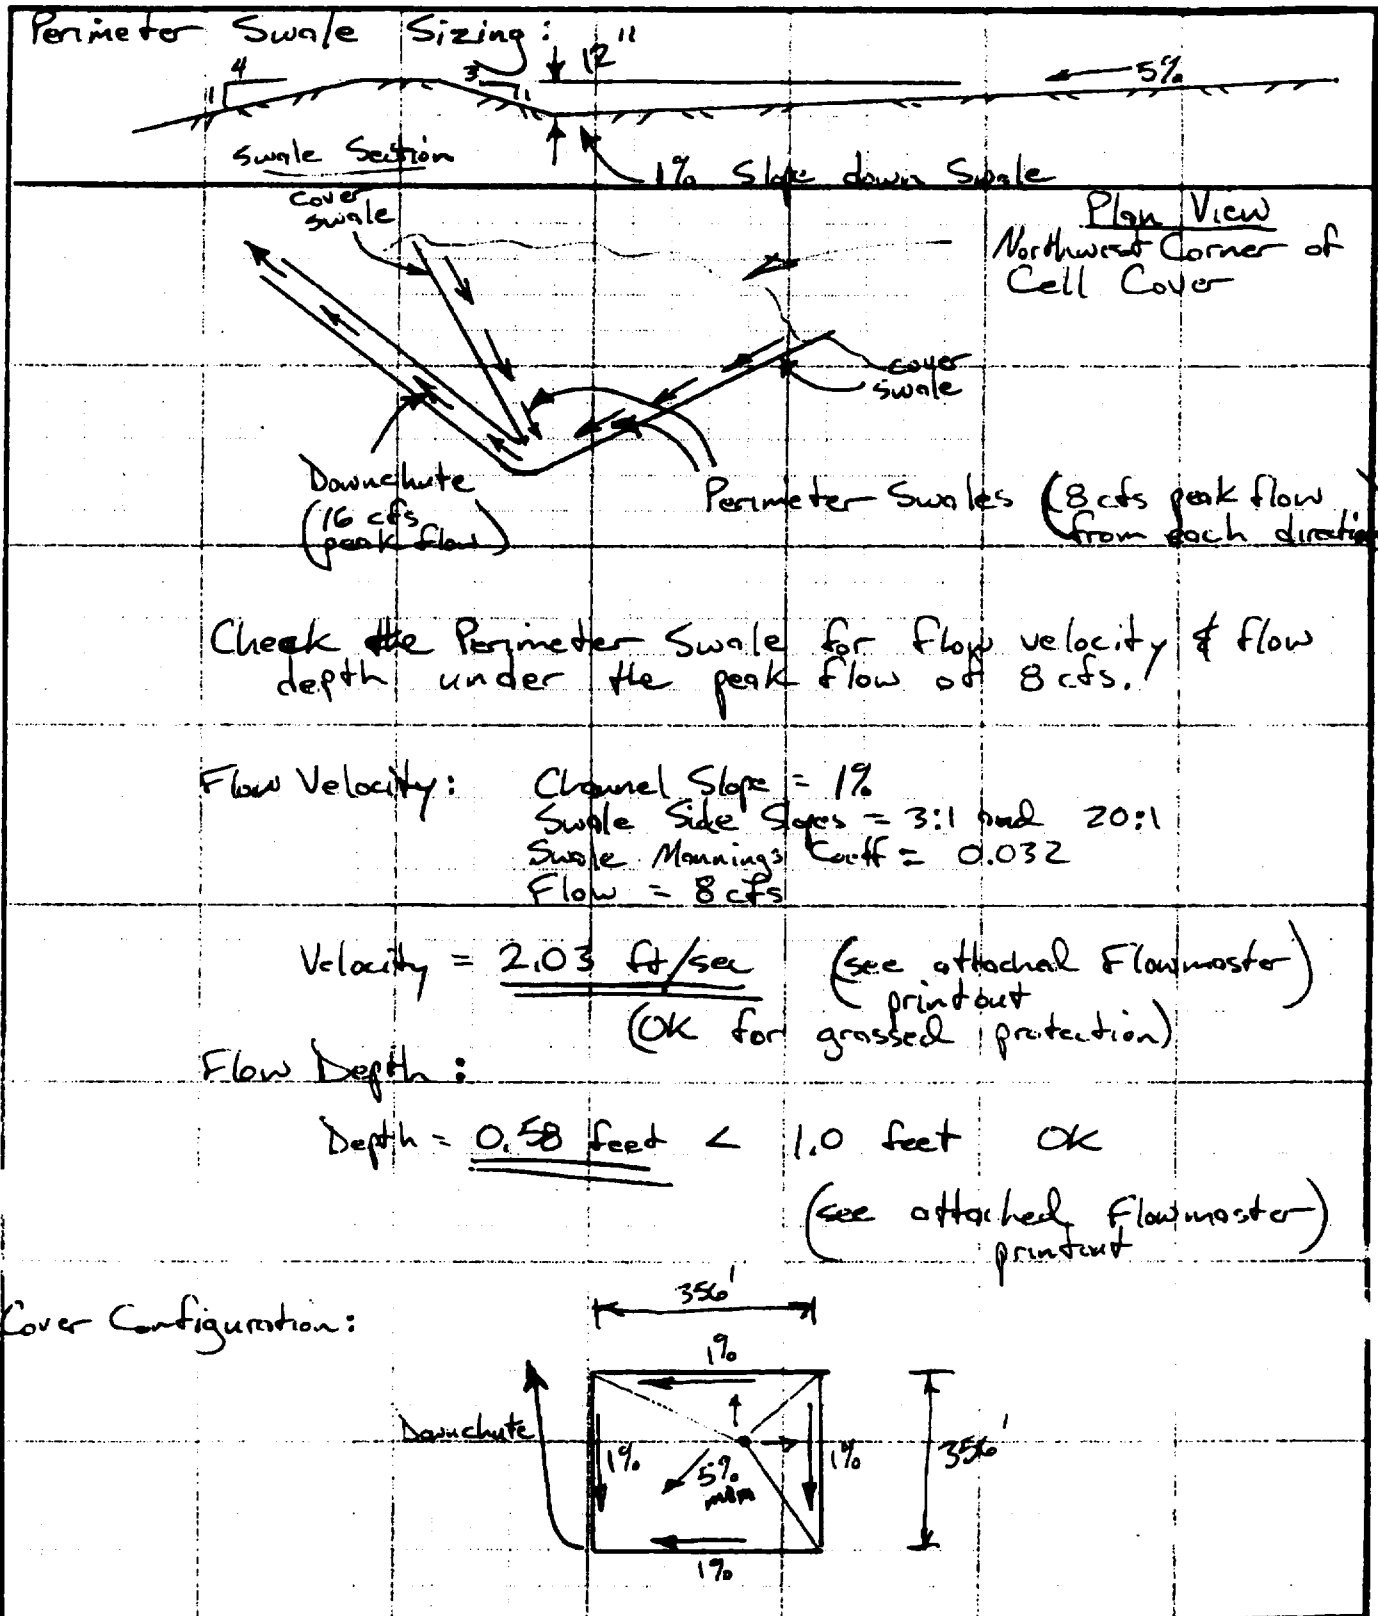 Perimeter Swale Sizing:
12"
4
1
3
1
5%
Swale Section
1% Slope down Swale
cover
swale
Plan View
Northwest Corner of
Cell Cover
cover
swale
Downchute
(16 cfs
peak flow)
Perimeter Swales (8 cfs peak flow
from each direction
Check the Perimeter Swale for flow velocity & flow
depth under the peak flow of 8 cfs.
Flow Velocity: Channel Slope = 1%
Swale Side Slopes = 3:1 and 20:1
Swale Mannings Coeff = 0.032
Flow = 8 cfs
Velocity = 2.03 ft/sec (see attached Flowmaster
printout)
(OK for grassed protection)
Flow Depth:
Depth = 0.58 feet < 1.0 feet OK
(see attached Flowmaster
printout)
Cover Configuration:
356'
1%
Downchute
1%
5%
min
1%
356'
1%